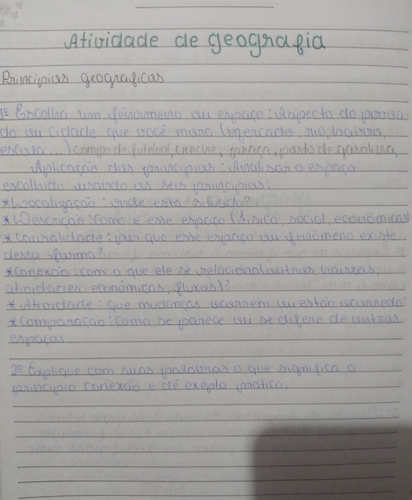 Atividade de geografia
Princípios geograficos
1º Escolha um fenômeno ou espaço: Aspecto do
do ou cidade que você mora (mercado, rio, bairro,
escola...) campo de futebol, creche, praça, posto de gasolina,
Aplicação dos princípios: Analisar o espaço
escolhido usando os seis princípios:
*Localização: onde está situado?
*Descrição: Como é esse espaço (físico, social, econômicas)
*Causalidade: por que esse espaço ou fenômeno existe
dessa forma?
*Conexão: com o que ele se relaciona (outros bairros,
atividades econômicas, fluxos)?
*Atividade: que mudanças ocorrem ou estão ocorrendo?
*Comparação: Como se parece ou se difere de outros
espaços
2º Explique com suas palavras o que significa o
princípio conexão e dê exemplo prático.